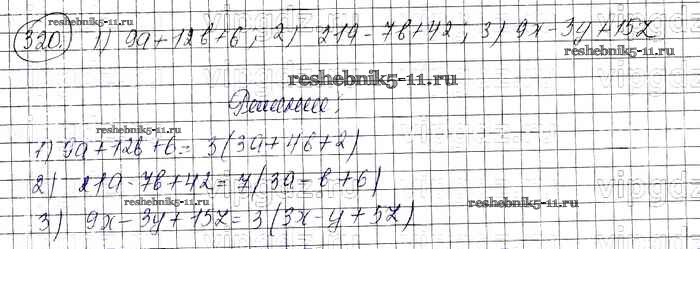 reshebnik5-11.ru
320. 1) 9a+12b+6; 2) 21a-7b+42; 3) 9x-3y+15z
reshebnik5-11.ru
reshebnik5-11.ru
Решение:
reshebnik5-11.ru
1) 9a+12b+6= 3(3a+4b+2)
2) 21a-7b+42=7(3a-b+6)
reshebnik5-11.ru
reshebnik5-11.ru
3) 9x-3y+15z=3(3x-y+5z)